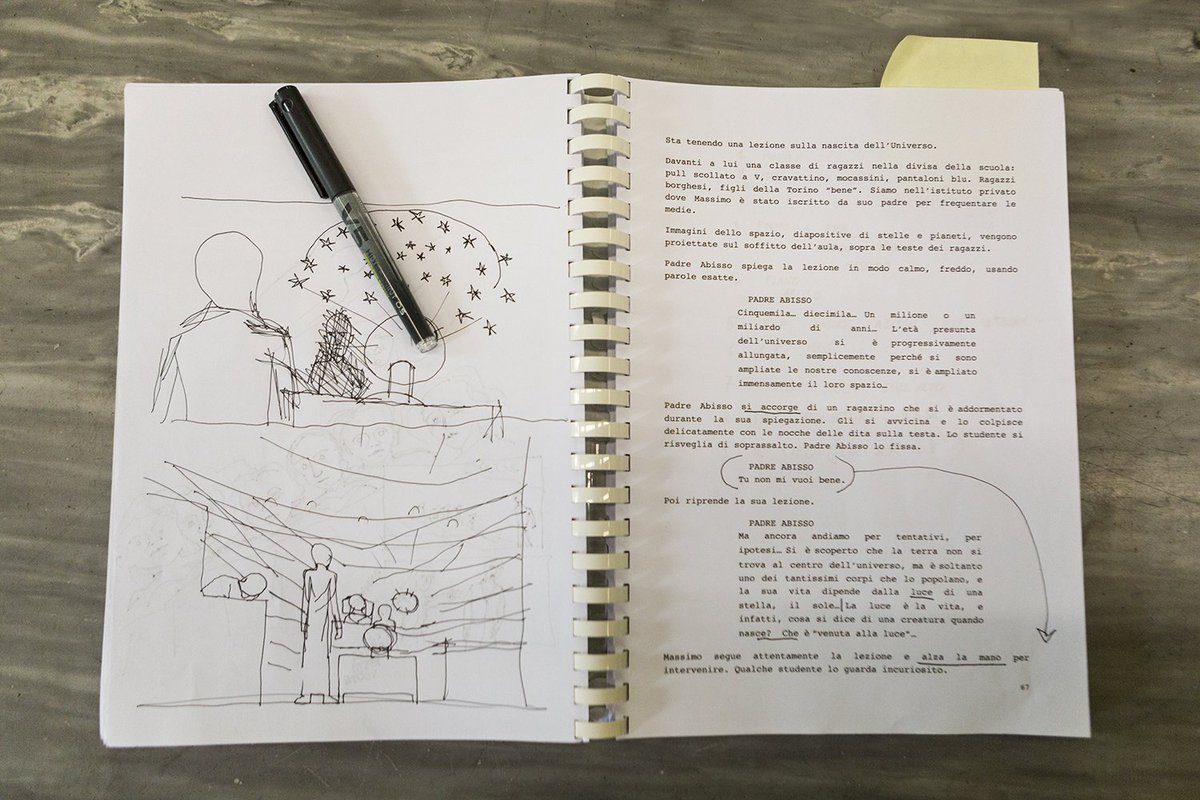 Sta tenendo una lezione sulla nascita dell'Universo.
Davanti a lui una classe di ragazzi nella divisa della scuola:
pull scollato a V, cravattino, mocassini, pantaloni blu. Ragazzi
borghesi, figli della Torino "bene". Siamo nell'istituto privato
dove Massimo è stato iscritto da suo padre per frequentare le
medie.
Immagini dello spazio, diapositive di stelle e pianeti, vengono
proiettate sul soffitto dell'aula, sopra le teste dei ragazzi.
Padre Abisso spiega la lezione in modo calmo, freddo, usando
parole esatte.
PADRE ABISSO
Cinquemila… diecimila… Un milione o un
miliardo di anni… L'età presunta
dell'universo si è progressivamente
allungata, semplicemente perché si sono
ampliate le nostre conoscenze, si è ampliato
immensamente il loro spazio…
Padre Abisso si accorge di un ragazzino che si è addormentato
durante la sua spiegazione. Gli si avvicina e lo colpisce
delicatamente con le nocche delle dita sulla testa. Lo studente si
risveglia di soprassalto. Padre Abisso lo fissa.
PADRE ABISSO
Tu non mi vuoi bene.
Poi riprende la sua lezione.
PADRE ABISSO
Ma ancora andiamo per tentativi, per
ipotesi… Si è scoperto che la terra non si
trova al centro dell'universo, ma è soltanto
uno dei tantissimi corpi che lo popolano, e
la sua vita dipende dalla luce di una
stella, il sole… La luce è la vita, e
infatti, cosa si dice di una creatura quando
nasce? Che è "venuta alla luce"…
Massimo segue attentamente la lezione e alza la mano per
intervenire. Qualche studente lo guarda incuriosito.
67